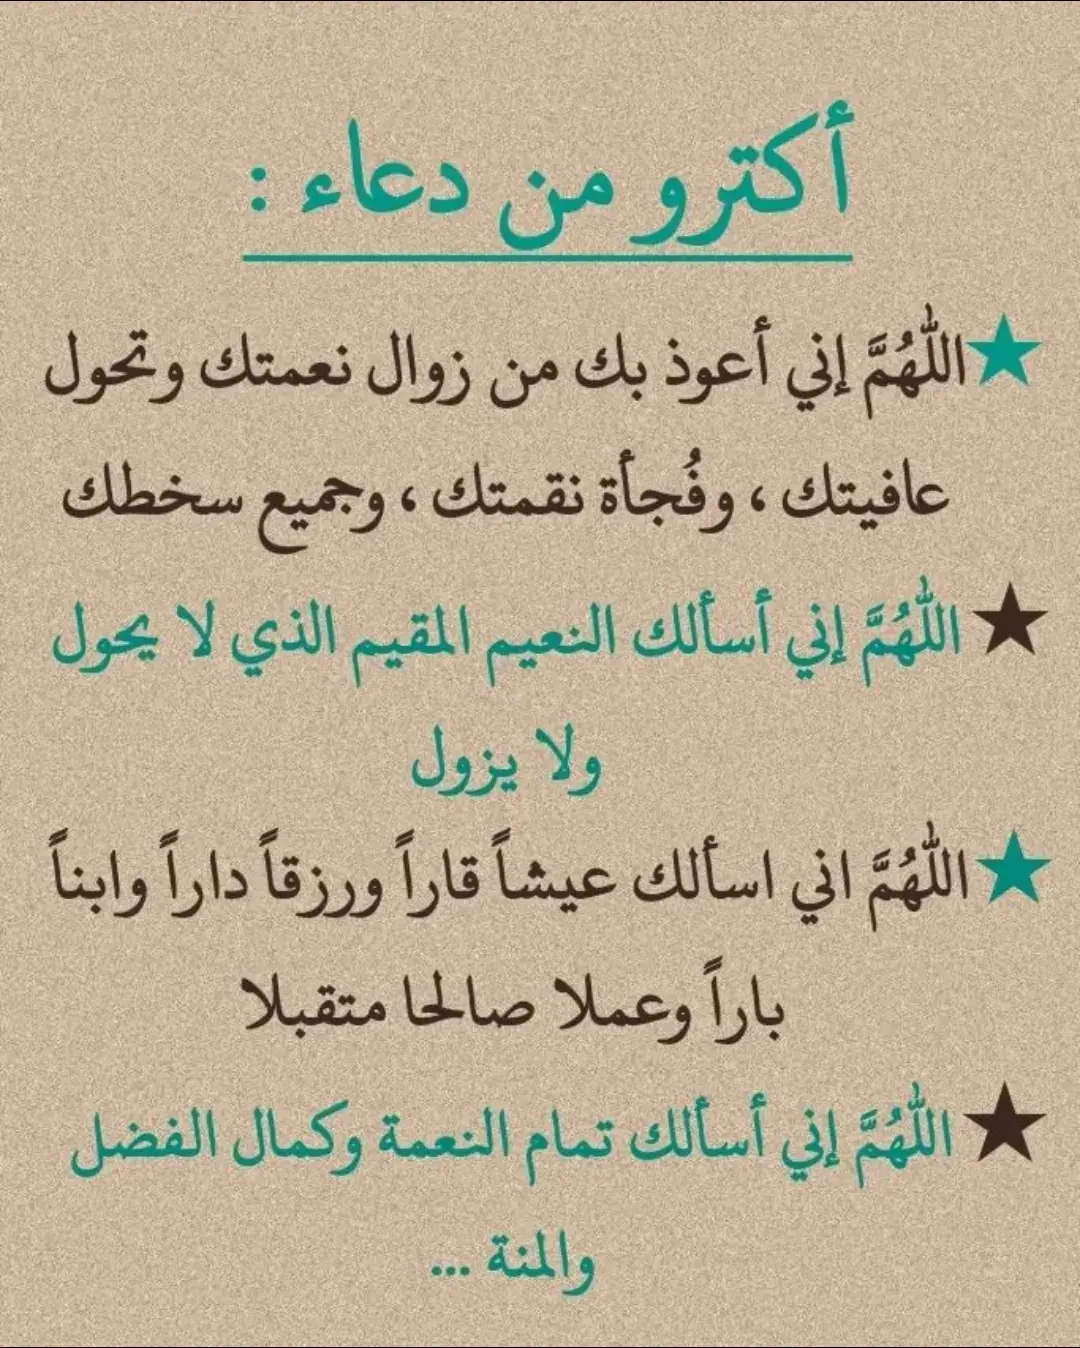 أكترو من دعاء :
اللَّهُمَّ إني أعوذ بك من زوال نعمتك وتحول
عافيتك ، وفُجأة نقمتك ، وجميع سخطك
اللَّهُمَّ إني أسألك النعيم المقيم الذي لا يحول
ولا يزول
اللَّهُمَّ اني اسألك عيشاً قاراً ورزقاً داراً وابناً
باراً وعملا صالحا متقبلا
اللَّهُمَّ إني أسألك تمام النعمة وكمال الفضل
والمنة ...